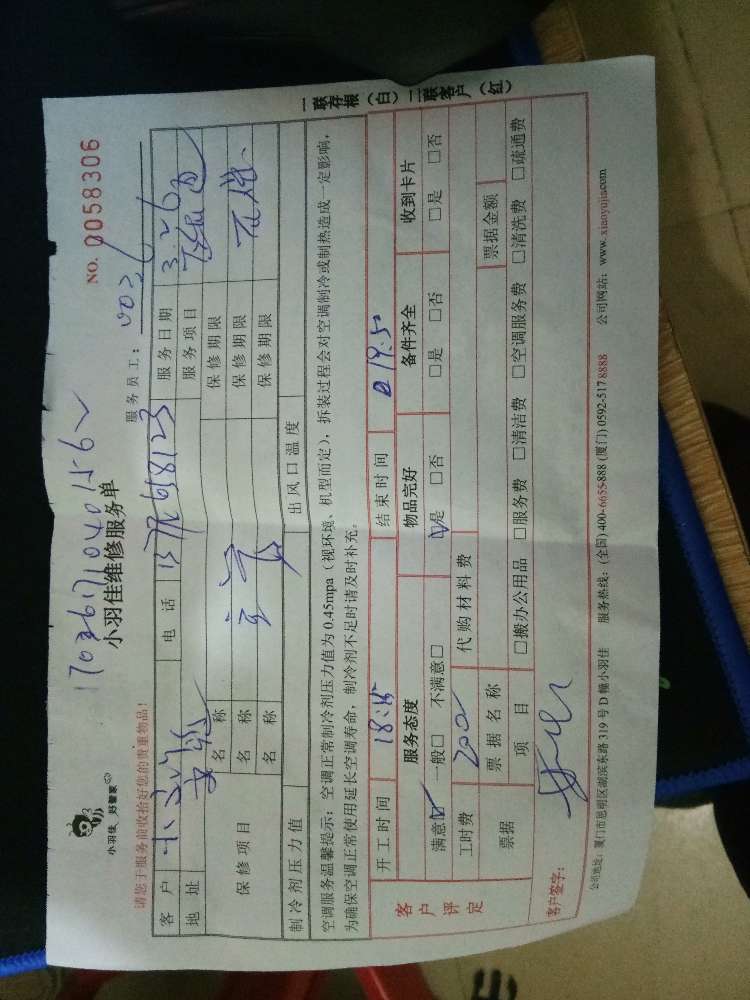 小羽佳 好管家
NO. 0058306
小羽佳维修服务单
请您于服务前收拾好您的贵重物品!
服务员工:
客户 电话 服务日期 3.26
地址 服务项目
保修项目 名称 保修期限
名称 保修期限
名称 保修期限
制冷剂压力值 出风口温度
空调服务温馨提示:空调正常制冷剂压力值为 0.45mpa(视环境、机型而定),拆装过程会对空调制冷或制热造成一定影响,
为确保空调正常使用延长空调寿命,制冷剂不足时请及时补充。
客户评定
开工时间 18:15 结束时间 19:50
服务态度 物品完好 备件齐全 收到卡片
满意☑ 一般□ 不满意□ ☑是 □否 □是 □否 □是 □否
工时费 200 代购材料费
票据 票据名称 票据金额
项目 □搬办公用品 □服务费 □清洁费 □空调服务费 □清洗费 □疏通费
客户签字:
公司地址:厦门市思明区湖滨东路 319 号 D 幢小羽佳 服务热线:(全国) 400-6655-888 (厦门) 0592-517 8888 公司网站:www. xiaoyujia.com
一联存根(白)二联客户(红)